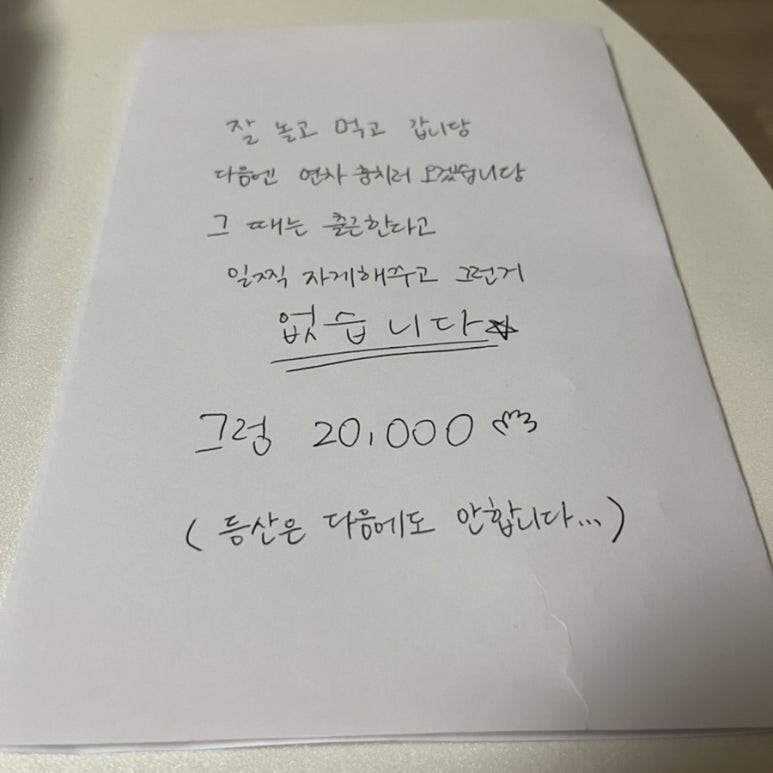 잘 놀고 먹고 갑니당
다음엔 연차 훔치러 오겠습니당
그 때는 출근한다고
일찍 자게해주고 그런거
없습니다☆
그럼 20,000
(등산은 다음에도 안합니다...)